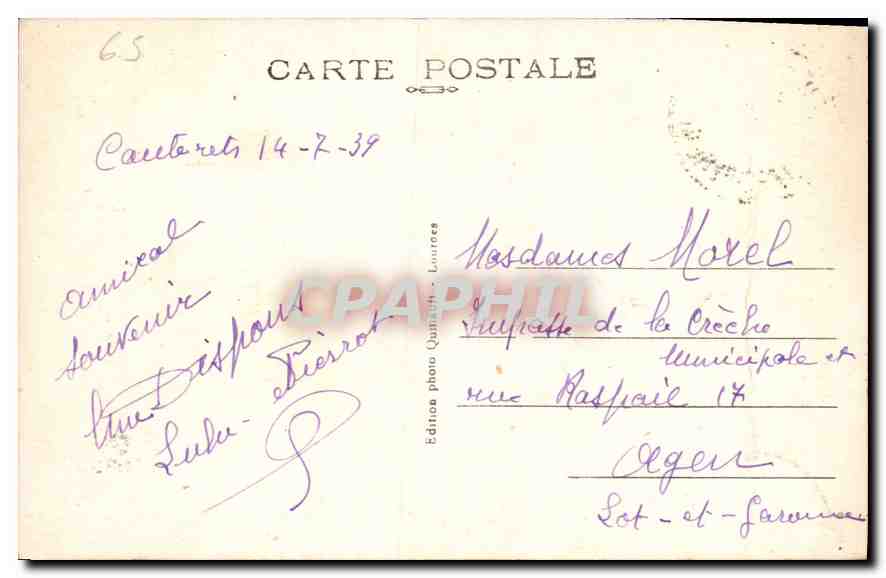 65
CARTE POSTALE
Cauterets 14-7-39
amical
souvenir
Dispons
Lulu - Pierrot
Edition photo Quinault - Lourdes
Mesdames Morel
Impasse de la Crèche
Municipale et
rue Raspail 17
Agen
Lot-et-Garonne
CPAPHIL